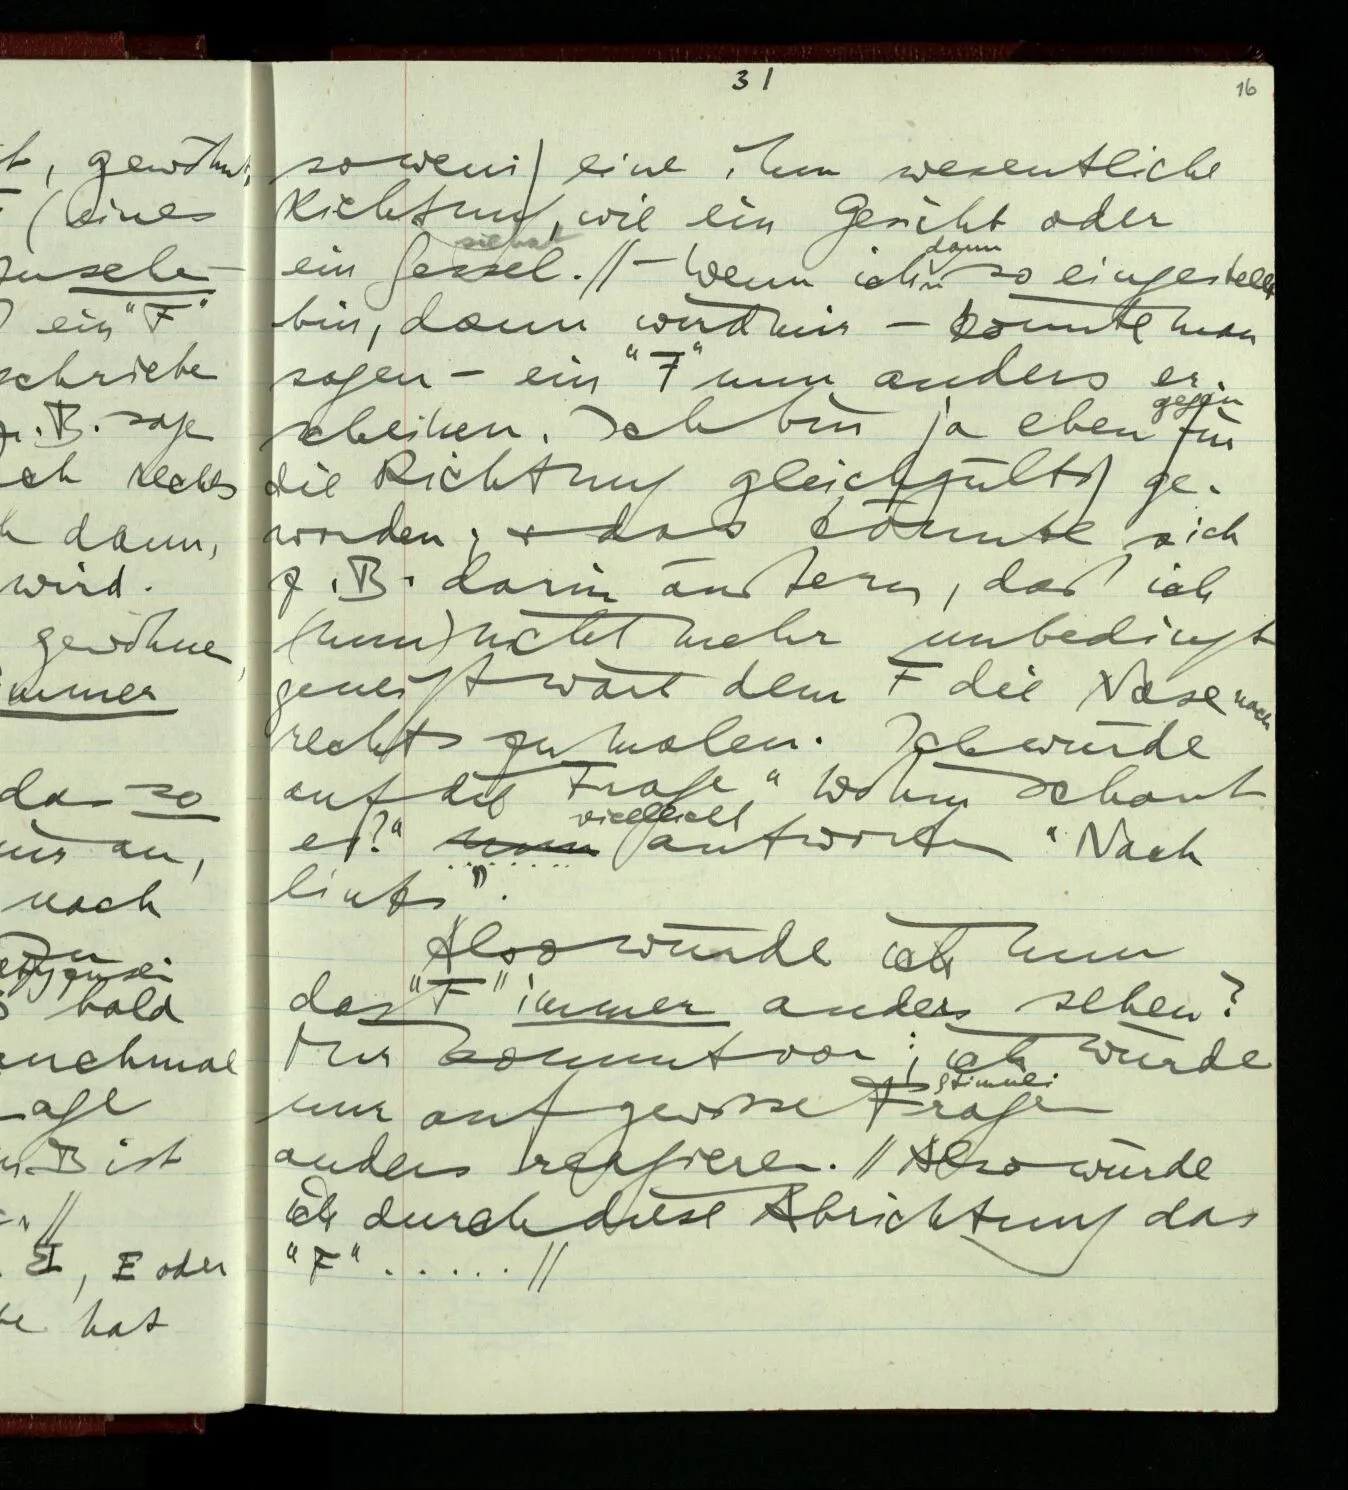 31
16
t, gewöhnt,
F (eines
zusehe-
ein "F"
schriebe
z.B. sage
ich rechts
dann,
wird.
gewöhne,
immer
das so
mir an,
nach
Zu
bald
manchmal
age
z.B. ist
//
I, E oder
hat
sowenig eine ihm wesentliche
Richtung, wie ein Gesicht oder
sie hat
ein Sessel. // – Wenn ich dann so eingestellt
bin, dann wird mir – könnte man
sagen – ein "F" nun anders er-
scheinen. Ich bin ja eben für
gegen
die Richtung gleichgültig ge-
worden; + das könnte sich
z.B. darin äußern, daß ich
(nun) nicht mehr unbedingt
geneigt wäre dem F die Nase nach
rechts zu malen. Ich würde
auf die Frage "Wohin schaut
er?" nun vielleicht antworten "Nach
links".
Also würde ich nun
das "F" immer anders sehen?
Mir kommt vor; ich würde
nur auf gewisse Fragen
anders reagieren. // Also würde
ich durch diese Abrichtung das
"F" ...... //